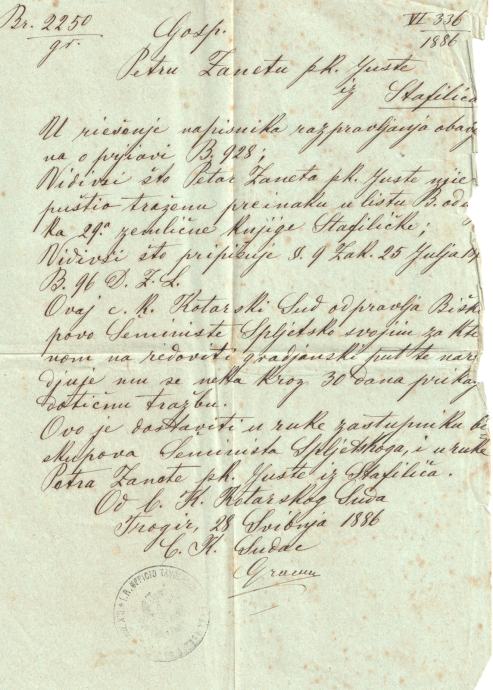 Br. 2250 VI 336
gr. 1886
Gosp.
Petru Zanetu pk. Juste
iz Stafilića
U riešenje napisnika razpravljanja obav
na o prijavi B. 928;
Vidivši što Petar Zaneta pk. Juste nije
puštio traženu preinaku u listu B. od
ka 29.a zemlične knjige Stafilićke;
Vidivši što pripisuje §. 9 Zak. 25 Julja
B. 96 D. Z. L.
Ovaj c. k. Kotarski Sud odpravlja Bisk
povo Seminište Spljetsko svojim zahtu
nom na redoviti gradjanski put te nare
djuje mu se neka kroz 30 dana prikaz
dotičnu tražbu.
Ovo je dostaviti u ruke zastupniku bi
skupova Seminista Spljetskoga, i u ruke
Petra Zanete pk. Juste iz Stafilića.
Od C. K. Kotarskog Suda
Trogir, 28 Svibnja 1886
C. K. Sudac
I.R. UFFICIO